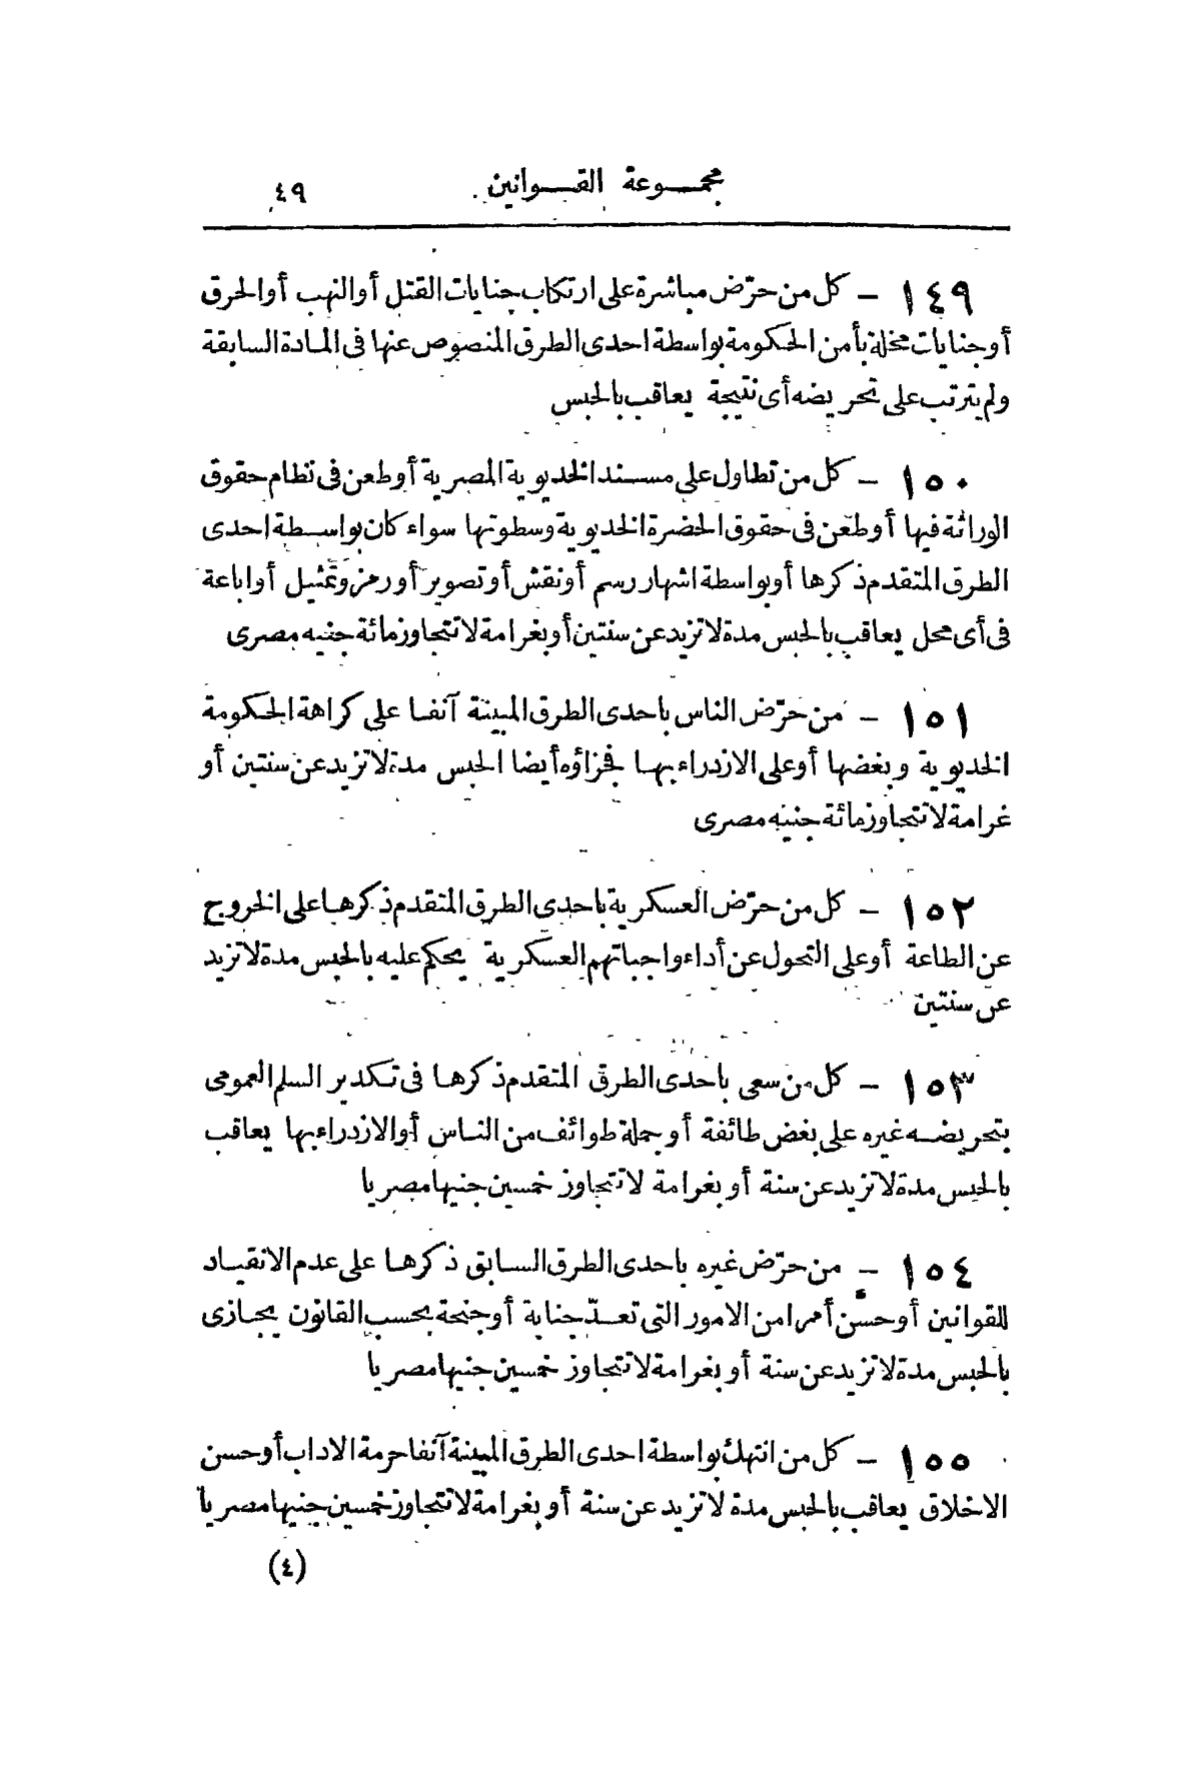 مجموعة القوانين ٤٩
١٤٩ – كل من حرّض مباشرة على ارتكاب جنايات القتل أو النهب أو الحرق
أو جنايات مخلة بأمن الحكومة بواسطة احدى الطرق المنصوص عنها فى المادة السابقة
ولم يترتب على تحريضه أى نتيجة يعاقب بالحبس
١٥٠ – كل من تطاول على مسند الخديوية المصرية أو طعن فى نظام حقوق
الوراثة فيها أو طعن فى حقوق الحضرة الخديوية وسطوتها سواء كان بواسطة احدى
الطرق المتقدم ذكرها أو بواسطة اشهار رسم أو نقش أو تصوير أو رمز وتمثيل أو اباعة
فى أى محل يعاقب بالحبس مدة لا تزيد عن سنتين أو بغرامة لا تتجاوز مائة جنيه مصرى
١٥١ – من حرّض الناس باحدى الطرق المبينة آنفا على كراهة الحكومة
الخديوية وبغضها أو على الازدراء بها فجزاؤه أيضا الحبس مدة لا تزيد عن سنتين أو
غرامة لا تتجاوز مائة جنيه مصرى
١٥٢ – كل من حرّض العسكرية باحدى الطرق المتقدم ذكرها على الخروج
عن الطاعة أو على التحول عن أداء واجباتهم العسكرية يحكم عليه بالحبس مدة لا تزيد
عن سنتين
١٥٣ – كل من سعى باحدى الطرق المتقدم ذكرها فى تكدير السلم العمومى
بتحريضه غيره على بغض طائفة أو جملة طوائف من الناس أو الازدراء بها يعاقب
بالحبس مدة لا تزيد عن سنة أو بغرامة لا تتجاوز خمسين جنيها مصريا
١٥٤ – من حرّض غيره باحدى الطرق السابق ذكرها على عدم الانقياد
للقوانين أو حسن أمرا من الامور التى تعدّ جناية أو جنحة بحسب القانون يجازى
بالحبس مدة لا تزيد عن سنة أو بغرامة لا تتجاوز خمسين جنيها مصريا
١٥٥ – كل من انتهك بواسطة احدى الطرق المبينة آنفا حرمة الاداب أو حسن
الاخلاق يعاقب بالحبس مدة لا تزيد عن سنة أو بغرامة لا تتجاوز خمسين جنيها مصريا
(٤)